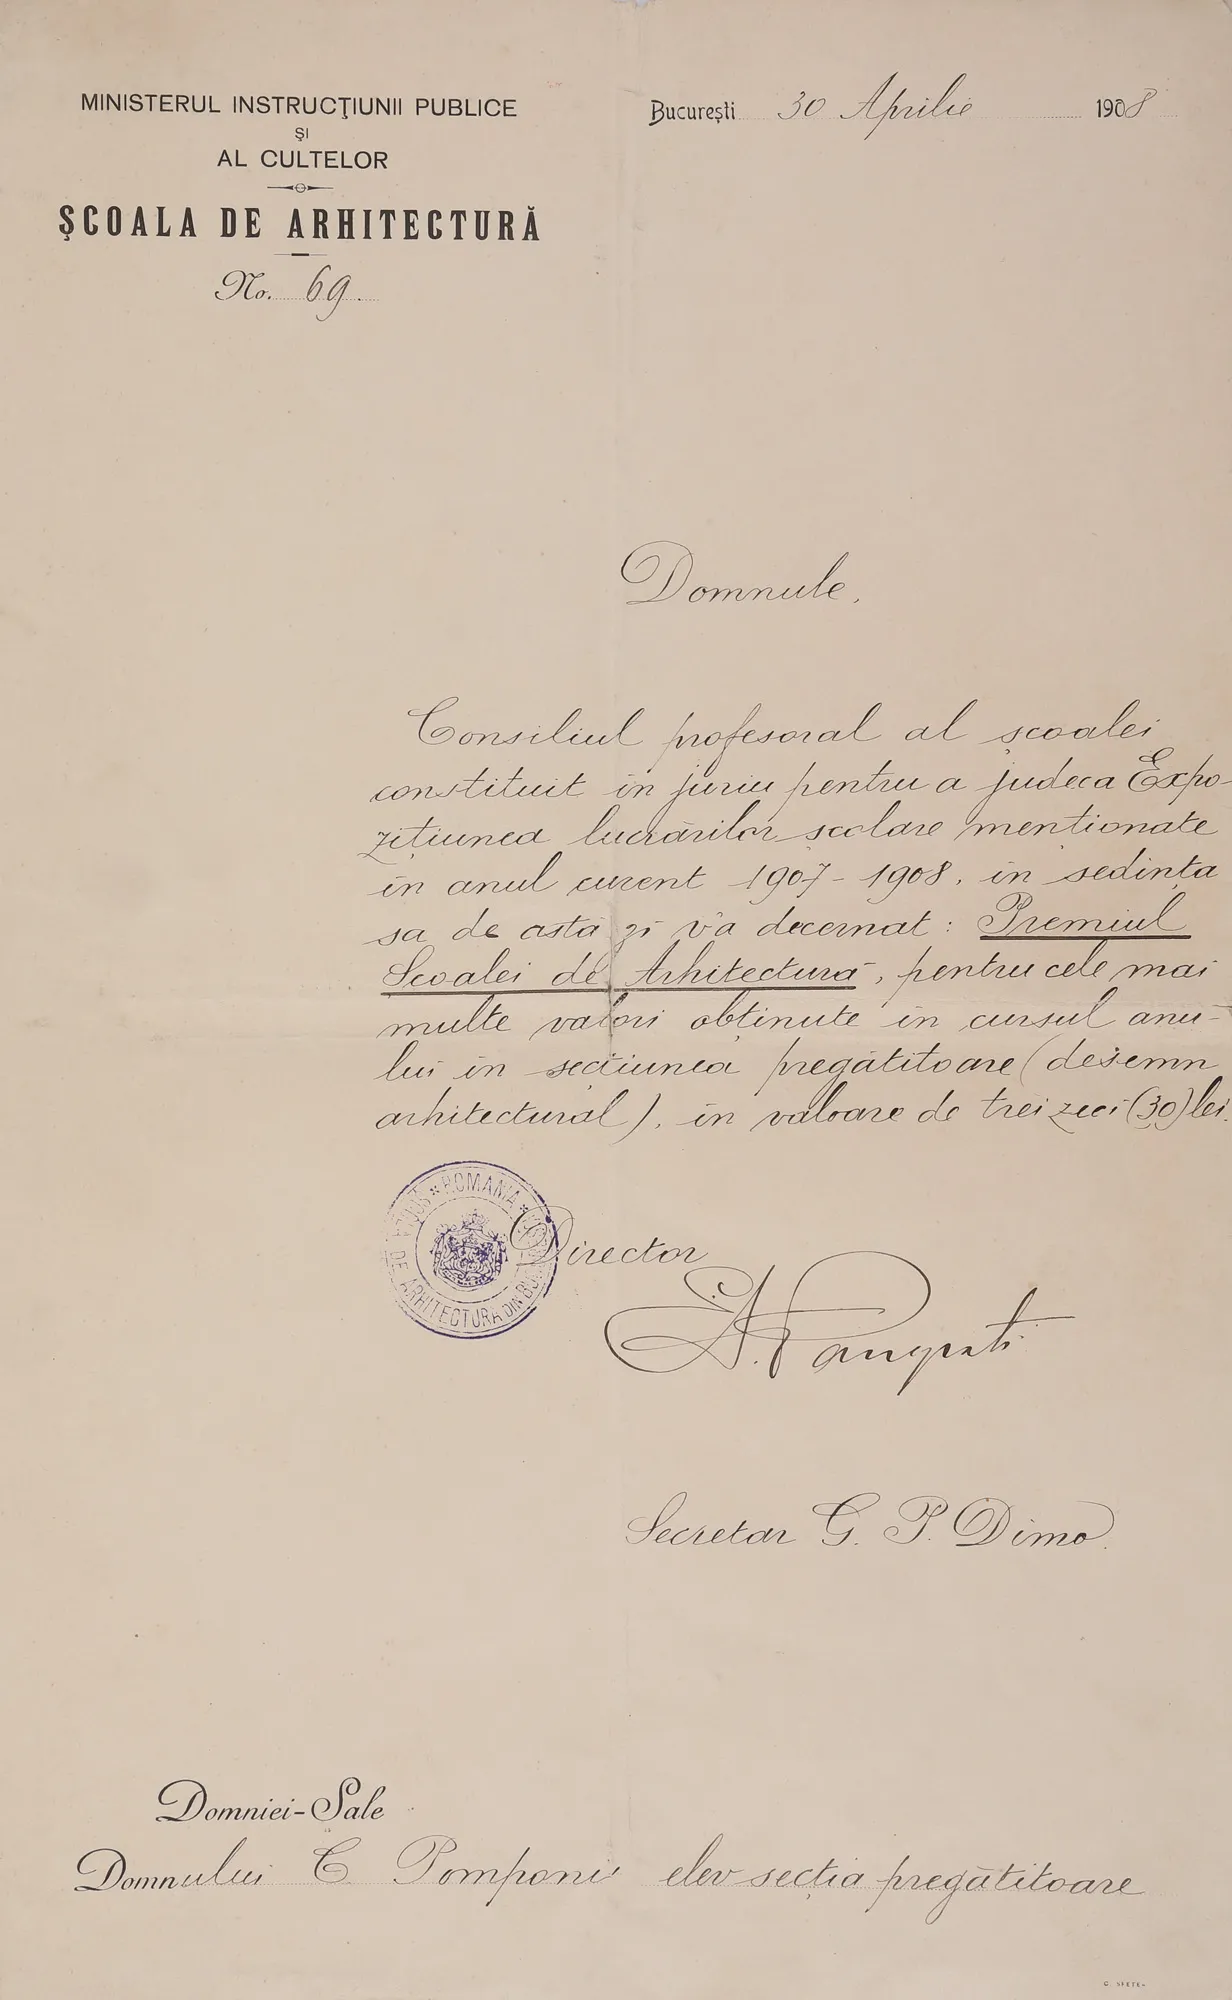 MINISTERUL INSTRUCŢIUNII PUBLICE
ŞI
AL CULTELOR
ŞCOALA DE ARHITECTURĂ
No. 69.
Bucureşti 30 Aprilie 1908
Domnule,
Consiliul profesoral al şcoalei
constituit în juriu pentru a judeca Expo-
ziţiunea lucrărilor şcolare menţionate
în anul curent 1907-1908, în sedinţa
sa de astă zi v'a decernat: Premiul
Scoalei de Arhitectură, pentru cele mai
multe valori obţinute în cursul anu-
lui în secţiunea pregătitoare (desemn
arhitectural), în valoare de trei zeci (30) lei.
ROMANIA
DE ARHITECTURA DIN
Director
A. Pangrati
Secretar G. P. Dimo
Domniei-Sale
Domnului C Pomponiu elev secţia pregătitoare